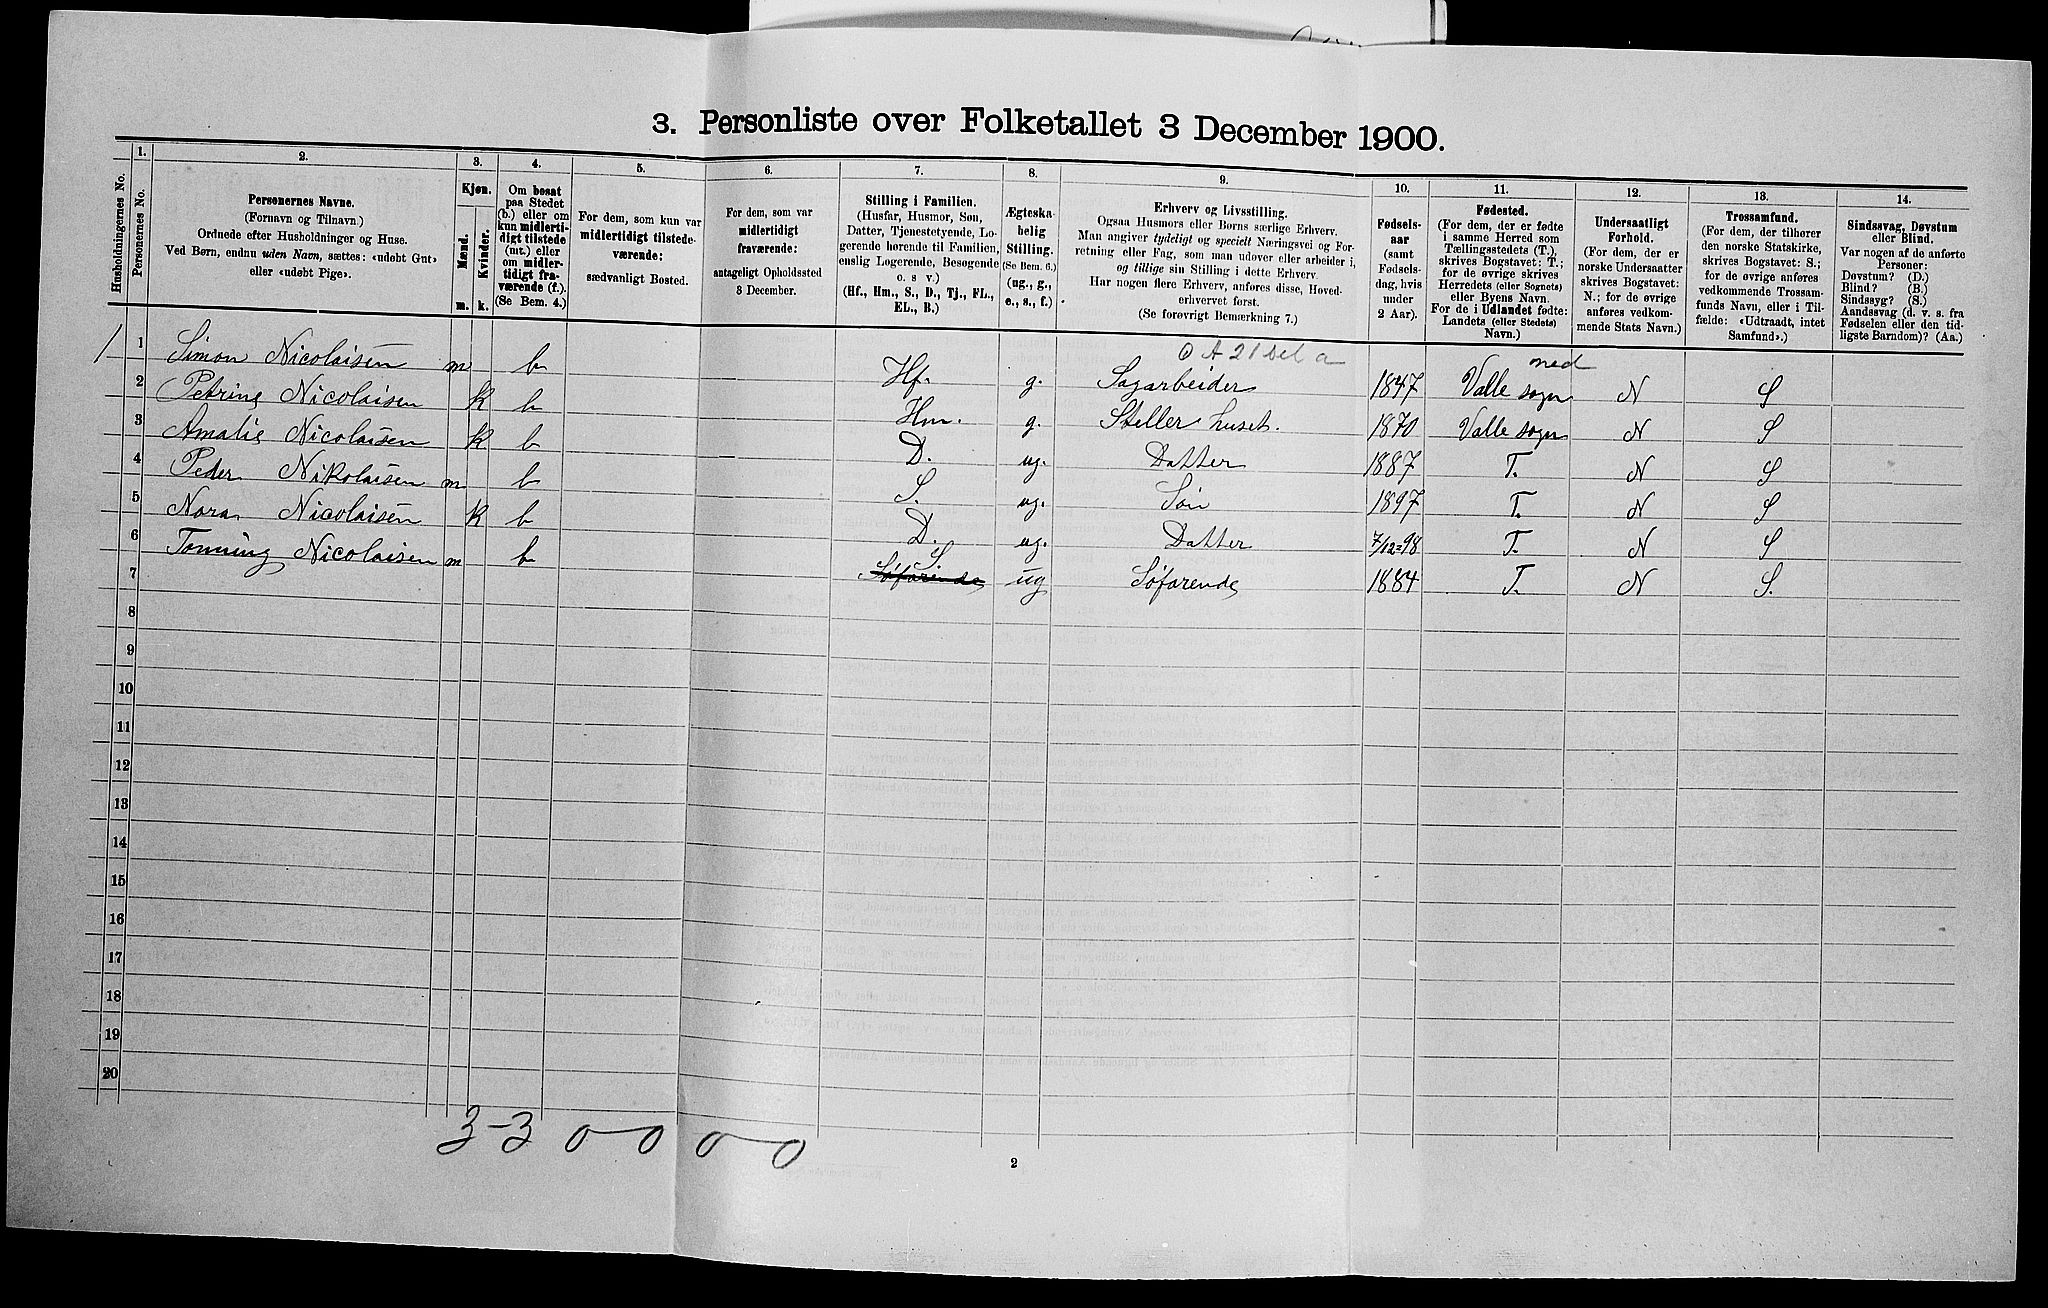 3. Personliste over Folketallet 3 December 1900.
Husholdningernes No.
1. Personernes No.
2. Personernes Navne.
(Fornavn og Tilnavn.)
Ordnede efter Husholdninger og Huse.
Ved Børn, endnu uden Navn, sættes: «udøbt Gut»
eller «udøbt Pige».
3. Kjøn.
Mænd. m.
Kvinder. k.
4. Om bosat
paa Stedet
(b.) eller om
kun midlerti-
digt tilstede
(mt.) eller
om midler-
tidigt fra-
værende (f.).
(Se Bem. 4.)
5. For dem, som kun var
midlertidigt tilstede-
værende:
sædvanligt Bosted.
6. For dem, som var
midlertidigt
fraværende:
antageligt Opholdssted
3 December.
7. Stilling i Familien.
(Husfar, Husmor, Søn,
Datter, Tjenestetyende, Lo-
gerende hørende til Familien,
enslig Logerende, Besøgende
o. s v.)
(Hf., Hm., S., D., Tj., FL.,
EL., B.)
8. Ægteska-
belig
Stilling.
(Se Bem. 6.)
(ug., g.,
e., s., f.)
9. Erhverv og Livsstilling.
Ogsaa Husmors eller Børns særlige Erhverv.
Man angiver tydeligt og specielt Næringsvei og For-
retning eller Fag, som man udøver eller arbeider i,
og tillige sin Stilling i dette Erhverv.
Har nogen flere Erhverv, anføres disse, Hoved-
erhvervet først.
(Se forøvrigt Bemærkning 7.)
10. Fødsels-
aar
(samt
Fødsels-
dag, hvis
under
2 Aar).
11. Fødested.
(For dem, der er fødte
i samme Herred som
Tællingsstedets (T.),
skrives Bogstavet: T.;
for de øvrige skrives
Herredets (eller Sognets)
eller Byens Navn.
For de i Udlandet fødte:
Landets (eller Stedets)
Navn.)
12. Undersaatligt
Forhold.
(For dem, der er
norske Undersaatter
skrives Bogstavet:
N.; for de øvrige
anføres vedkom-
mende Stats Navn.)
13. Trossamfund.
(For dem, der tilhører
den norske Statskirke,
skrives Bogstavet: S.;
for de øvrige anføres
vedkommende Trossam-
funds Navn, eller i Til-
fælde: «Udtraadt, intet
Samfund».)
14. Sindssvag, Døvstum
eller Blind.
Var nogen af de anførte
Personer:
Døvstum? (D.)
Blind? (B.)
Sindssyg? (S.)
Aandssvag (d. v. s. fra
Fødselen eller den tid-
ligste Barndom)? (Aa.)
A 21 bel a
1 1 Simon Nicolaisen m b Hf. g. Sagarbeider 1847 Valle sogn N S
2 Petrine Nicolaisen k b Hm. g. Steller huset. 1870 Valle sogn N S
3 Amalie Nicolaisen k b D. ug. Datter 1887 T. N S
4 Peder Nikolaisen m b S. ug. Søn 1897 T. N S
5 Nora Nicolaisen k b D. ug. Datter 7/12=98 T. N S
6 Tønning Nicolaisen m b S. Søfarende ug Søfarende 1884 T. N S.
7
8
9
10
11
12
13
14
15
16
17
18
19
20
3-3 0 0 0 0
2